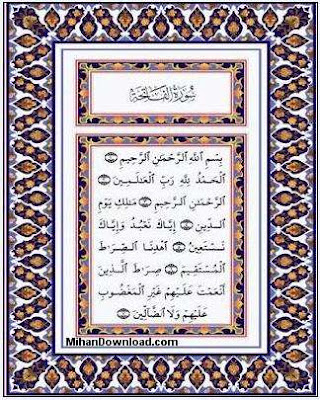 سُورَةُ الفَاتِحَة
بِسْمِ ٱللَّهِ ٱلرَّحْمَٰنِ ٱلرَّحِيمِ ۝
ٱلْحَمْدُ لِلَّهِ رَبِّ ٱلْعَٰلَمِينَ ۝
ٱلرَّحْمَٰنِ ٱلرَّحِيمِ ۝ مَٰلِكِ يَوْمِ
ٱلدِّينِ ۝ إِيَّاكَ نَعْبُدُ وَإِيَّاكَ
نَسْتَعِينُ ۝ ٱهْدِنَا ٱلصِّرَٰطَ
ٱلْمُسْتَقِيمَ ۝ صِرَٰطَ ٱلَّذِينَ
أَنْعَمْتَ عَلَيْهِمْ غَيْرِ ٱلْمَغْضُوبِ
عَلَيْهِمْ وَلَا ٱلضَّآلِّينَ ۝
MihanDownload.com